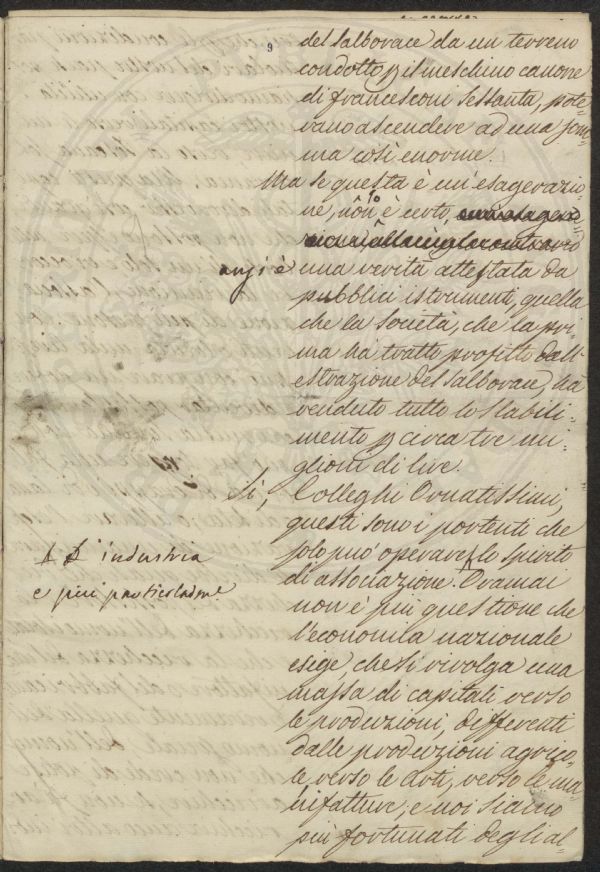 9
del Salborace da un terreno
condotto p il meschino canone
di francesconi sessanta, pote=
vano ascendere ad una som=
ma così enorme.
Ma se questa è un' esagerazio=
ne, non lo è certo,
anzi è una verità attestata da
pubblici istrumenti, quella
che la Società, che la pri=
ma ha tratto profitto dall'
estrazione del Salborace, ha
venduto tutto lo Stabili=
mento p circa tre mi=
glioni di lire.
Sì, Colleghi Ornatissimi,
questi sono i portenti che
solo può operare lo spirito
di associazione. Oramai
non è più questione che
l'economia nazionale
esige, che si rivolga una
massa di capitali verso
le produzioni, differenti
dalle produzioni agrico=
le verso le Arti, verso le ma=
nifatture; e noi siamo
più fortunati degli al=
L' industria
e più particolarme